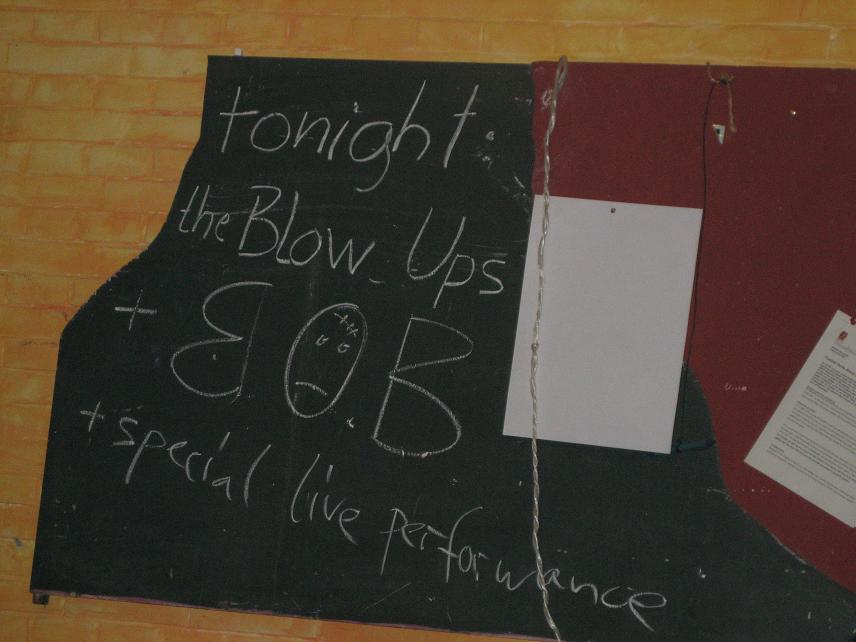 tonight.
the Blow Ups
+ BOB
+ special live performance